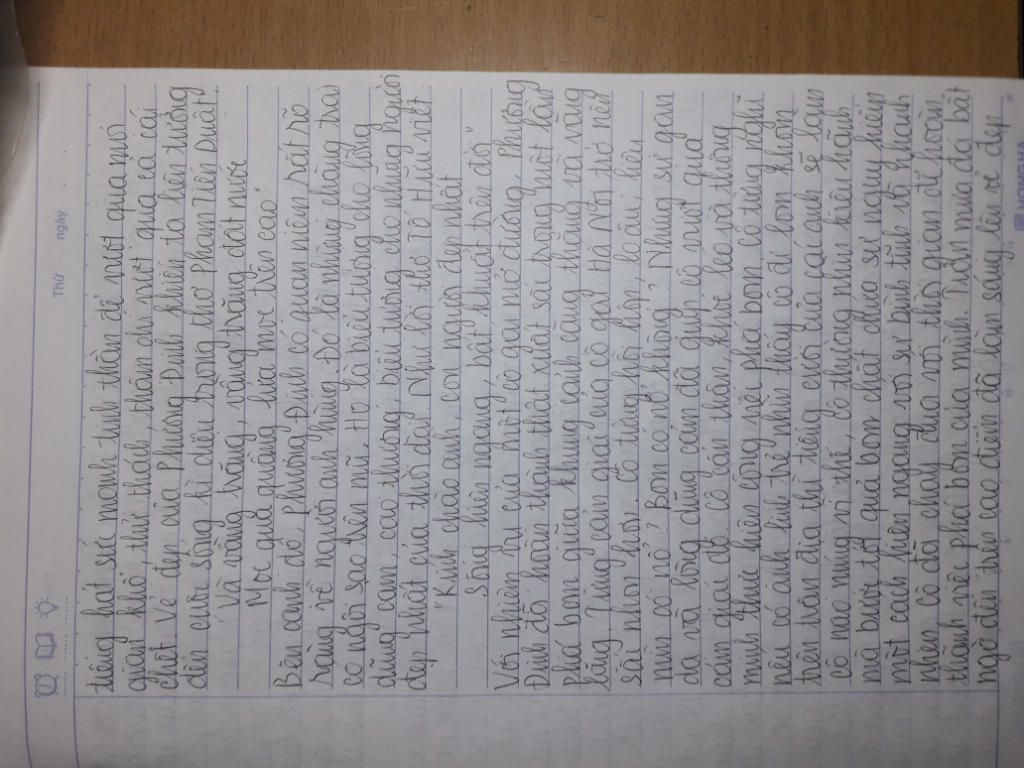 Thứ ngày
tiếng hát sức mạnh tinh thần để vượt qua mọi
gian khổ, thử thách, thậm chí vượt qua cả cái
chết. Vẻ đẹp của Phương Định khiến ta liên tưởng
đến cuộc sống kì diệu trong thơ Phạm Tiến Duật:
"Và vầng trăng, vầng trăng đất nước
Mọc qua quầng lửa mọc trên cao."
Bên cạnh đó Phương Định có quan niệm rất rõ
ràng về người anh hùng. Đó là những chàng trai
có ngôi sao trên mũ. Họ là biểu tượng cho lòng
dũng cảm cao thượng, biểu tượng cho những người
đẹp nhất của thời đại. Như lời thơ Tố Hữu viết
"Kính chào anh con người đẹp nhất
Sống hiên ngang, bất khuất trên đời"
Với nhiệm vụ của một cô gái mở đường, Phương
Định đã hoàn thành thật xuất sắc trong một lần
phá bom giữa khung cảnh căng thẳng và vắng
lặng. Từng cảm giác của cô gái Hà Nội trở nên
sắc nhọn hơn. Cô từng hồi hộp, lo âu, liệu
mìn có nổ? Bom có nổ không? Nhưng sự gan
dạ và lòng dũng cảm đã giúp cô vượt qua
cảm giác đó. Cô cẩn thận, khéo léo và thông
minh thực hiện công việc phá bom. Cô từng nghĩ
nếu có anh lính trẻ nhìn thấy cô đi lom khom
trên bàn địa thì tiếng cười của các anh sẽ làm
cô nao núng vì thế, cô thường nhìn kiêu hãnh
mà bước tới quả bom chất chứa sự nguy hiểm
một cách hiên ngang với sự bình tĩnh vô
nhiên cô đã chạy đua với thời gian để hoàn
thành việc phá bom của mình. Trận mưa đá bất
ngờ đến trên cao điểm đã làm sáng lên vẻ đẹp